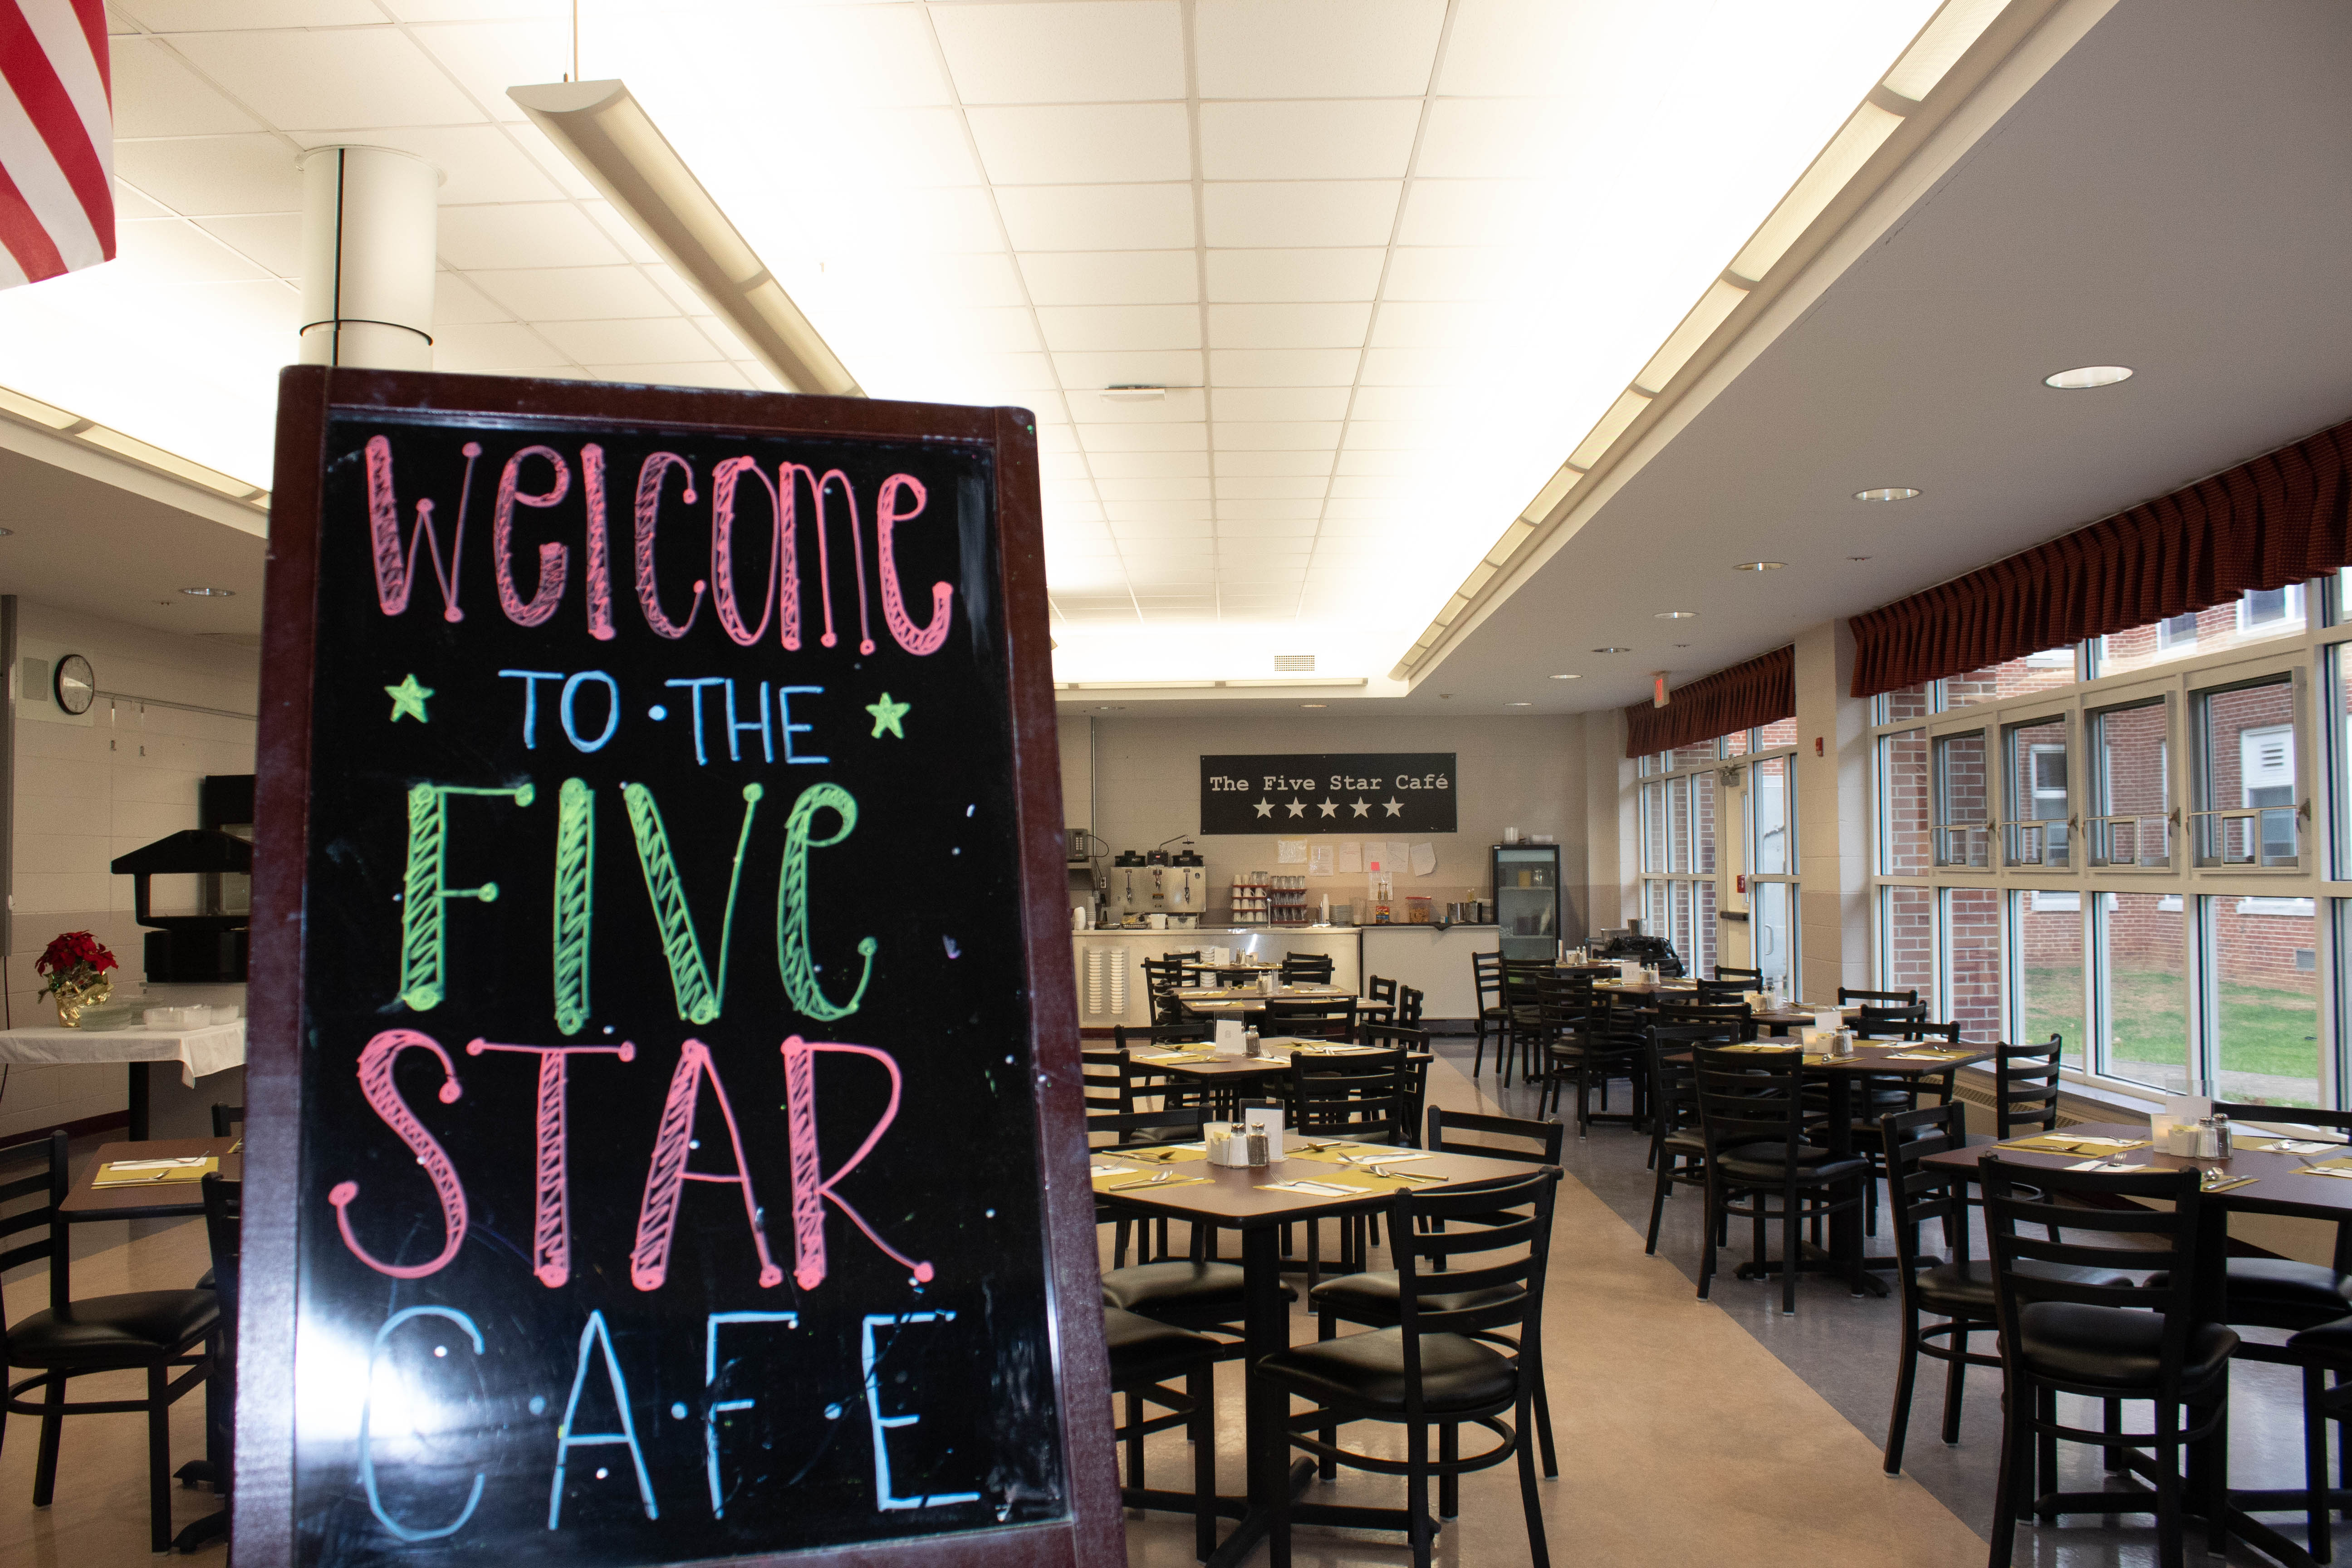 Welcome
TO • THE
FIVE
STAR
C•A•F•E
The Five Star Café